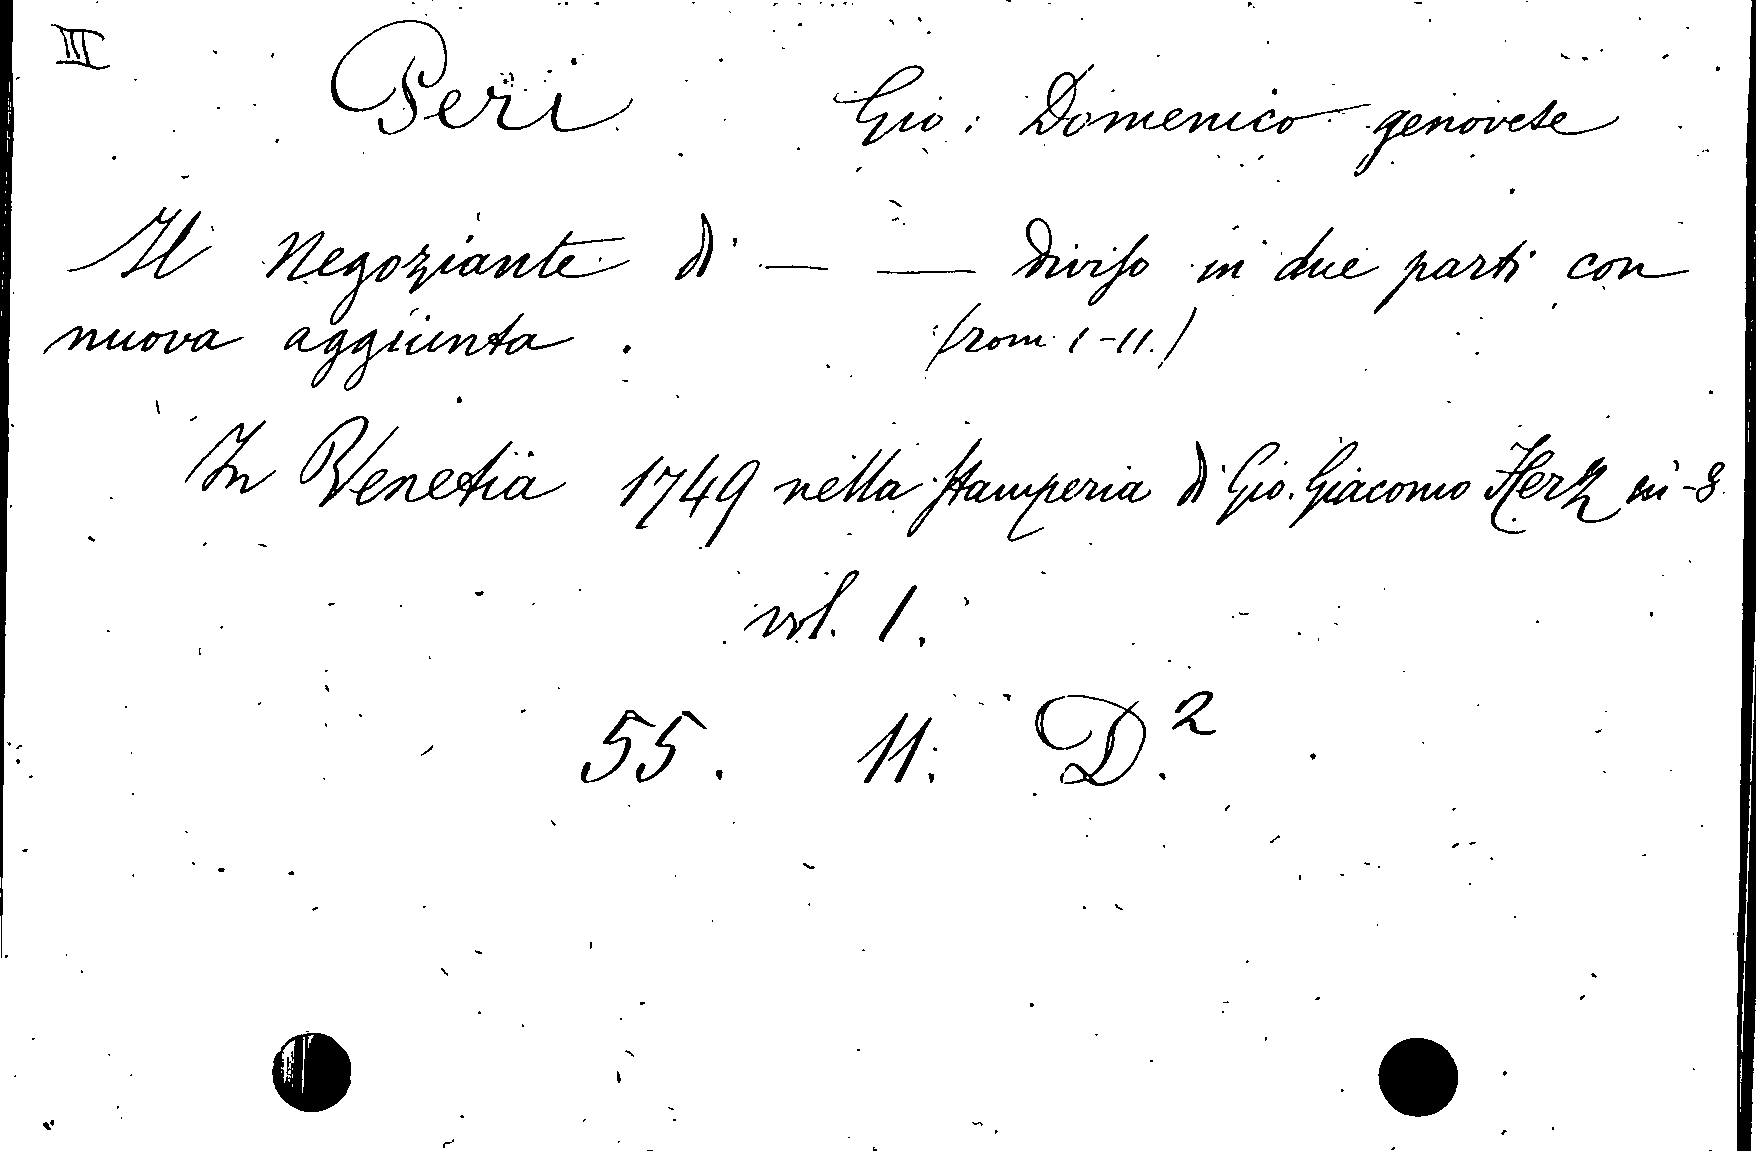 III
Peri Gio: Domenico genovese
Il Negoziante di — — diviso in due parti con
nuova aggiunta. (tom. I-II.)
In Venetia 1749 nella stamperia di Gio. Giacomo Herz in-8
vol. 1.
55. 11. D.²